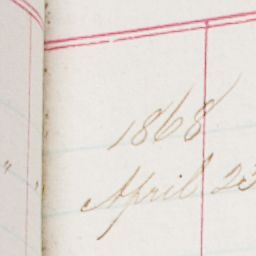 1868
April 23
"